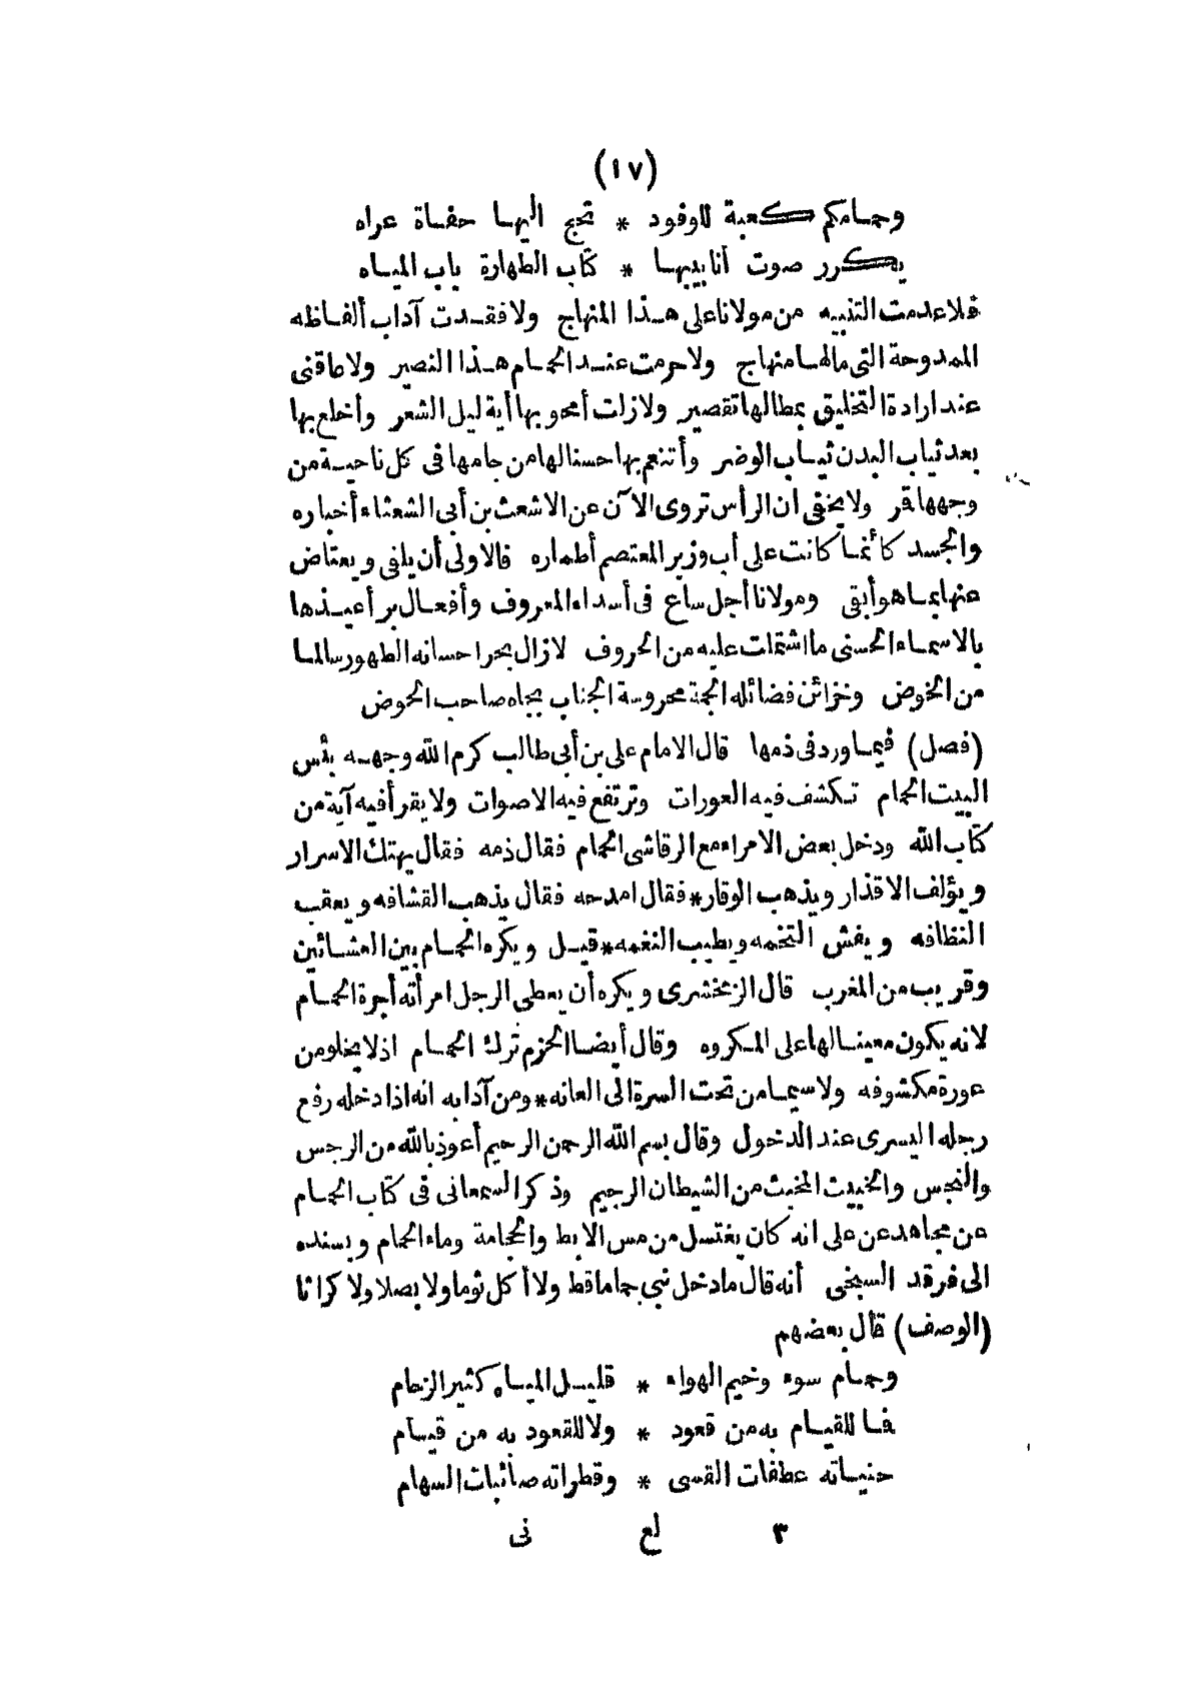 (١٧)
وحمامكم كعبة للوفود * تحج اليها حفاة عراه
يكرر صوت أنابيبها * كتاب الطهارة باب المياه
فلا عدمت التنبيه من مولانا على هذا المنهاج ولا فقدت آداب ألفاظه
الممدوحة التي مالها منهاج ولا حرمت عند الحمام هذا النصير ولا عاقني
عند ارادة التخليق بمطالها تقصير ولا زلت أمحو بها آية ليل الشعر وأخلع بها
بعد ثياب البدن ثياب الوضر وأتنعم بها حسنا لها من جامها في كل ناحية من
وجهها قر ولا يخفى ان الرأس تروى الآن عن الاشعث بن أبي الشعثاء أخباره
والجسد كأنما كانت على أب وزير المعتصم أطماره فالاولى أن يلفى ويعتاض
عنها بما هو أبقى ومولانا أجل ساع في أسداء المعروف وأفعال بر أعيذها
بالاسماء الحسنى ما اشتملت عليه من الحروف لازال بحر احسانه الطهور سالما
من الخوض وخزائن فضائله الجمة محروسة الجناب بجاه صاحب الحوض
(فصل) فيما ورد في ذمها قال الامام على بن أبي طالب كرم الله وجهه بئس
البيت الحمام تكشف فيه العورات وترتفع فيه الاصوات ولا يقرأ فيه آية من
كتاب الله ودخل بعض الامراء مع الرقاشي الحمام فقال ذمه فقال يهتك الاسرار
ويؤلف الاقذار ويذهب الوقار * فقال امدحه فقال يذهب القشافه ويعقب
النظافه ويفش التخمه ويطيب النغمه * قيل ويكره الحمام بين العشائين
وقريب من المغرب قال الزمخشري ويكره أن يعطى الرجل امرأته أجرة الحمام
لانه يكون معينا لها على المكروه وقال أيضا الحزم ترك الحمام اذ لا يخلو من
عورة مكشوفه ولا سيما من تحت السرة الى العانه * ومن آدابه انه اذا دخله رفع
رجله اليسرى عند الدخول وقال بسم الله الرحمن الرحيم أعوذ بالله من الرجس
والنجس والخبيث المخبث من الشيطان الرجيم وذكر السمعاني في كتاب الحمام
عن مجاهد عن على انه كان يغتسل من مس الابط والحجامة وماء الحمام وبسنده
الى فرقد السبخي أنه قال مادخل نبي حماما قط ولا أكل ثوما ولا بصلا ولا كراثا
(الوصف) قال بعضهم
وحمام سوء وخيم الهواء * قليل المياه كثير الزحام
فما للقيام به من قعود * ولا للقعود به من قيام
حنياته عطفات القسى * وقطراته صائبات السهام
٣ لع نى